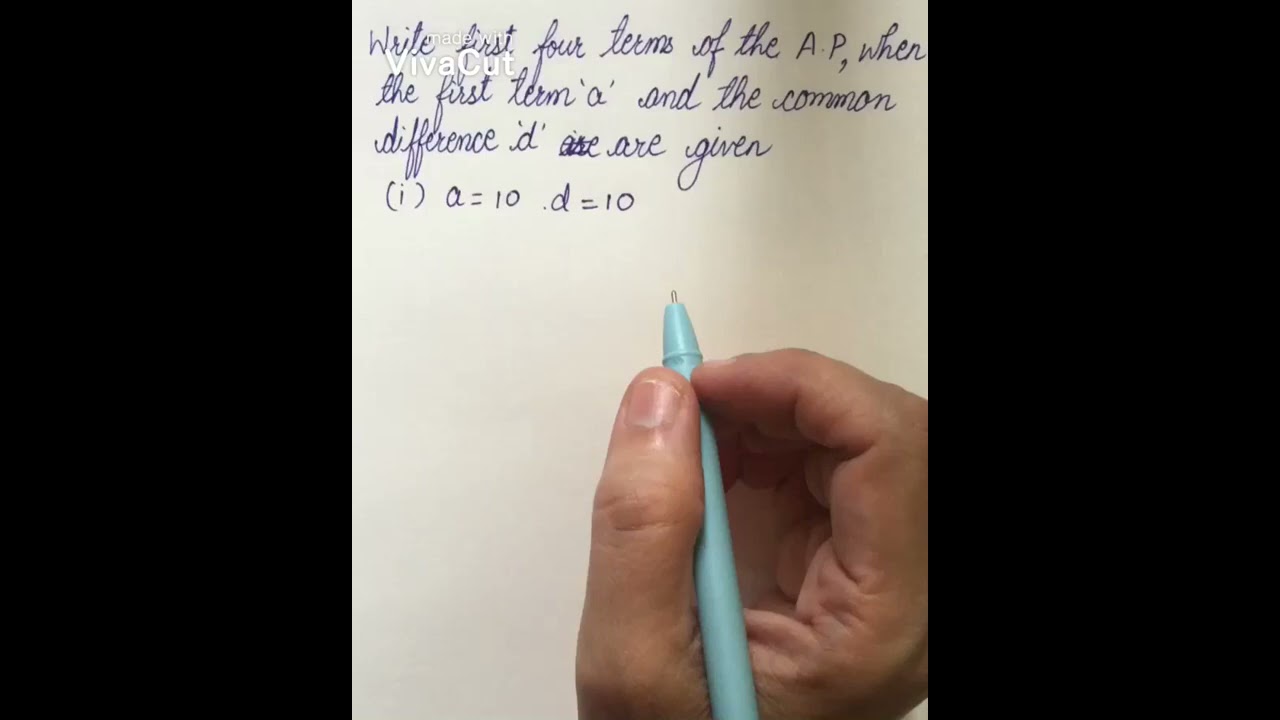 Write first four terms of the A.P, when
made with
VivaCut
the first term 'a' and the common
difference 'd' are given
(i) a = 10 .d = 10